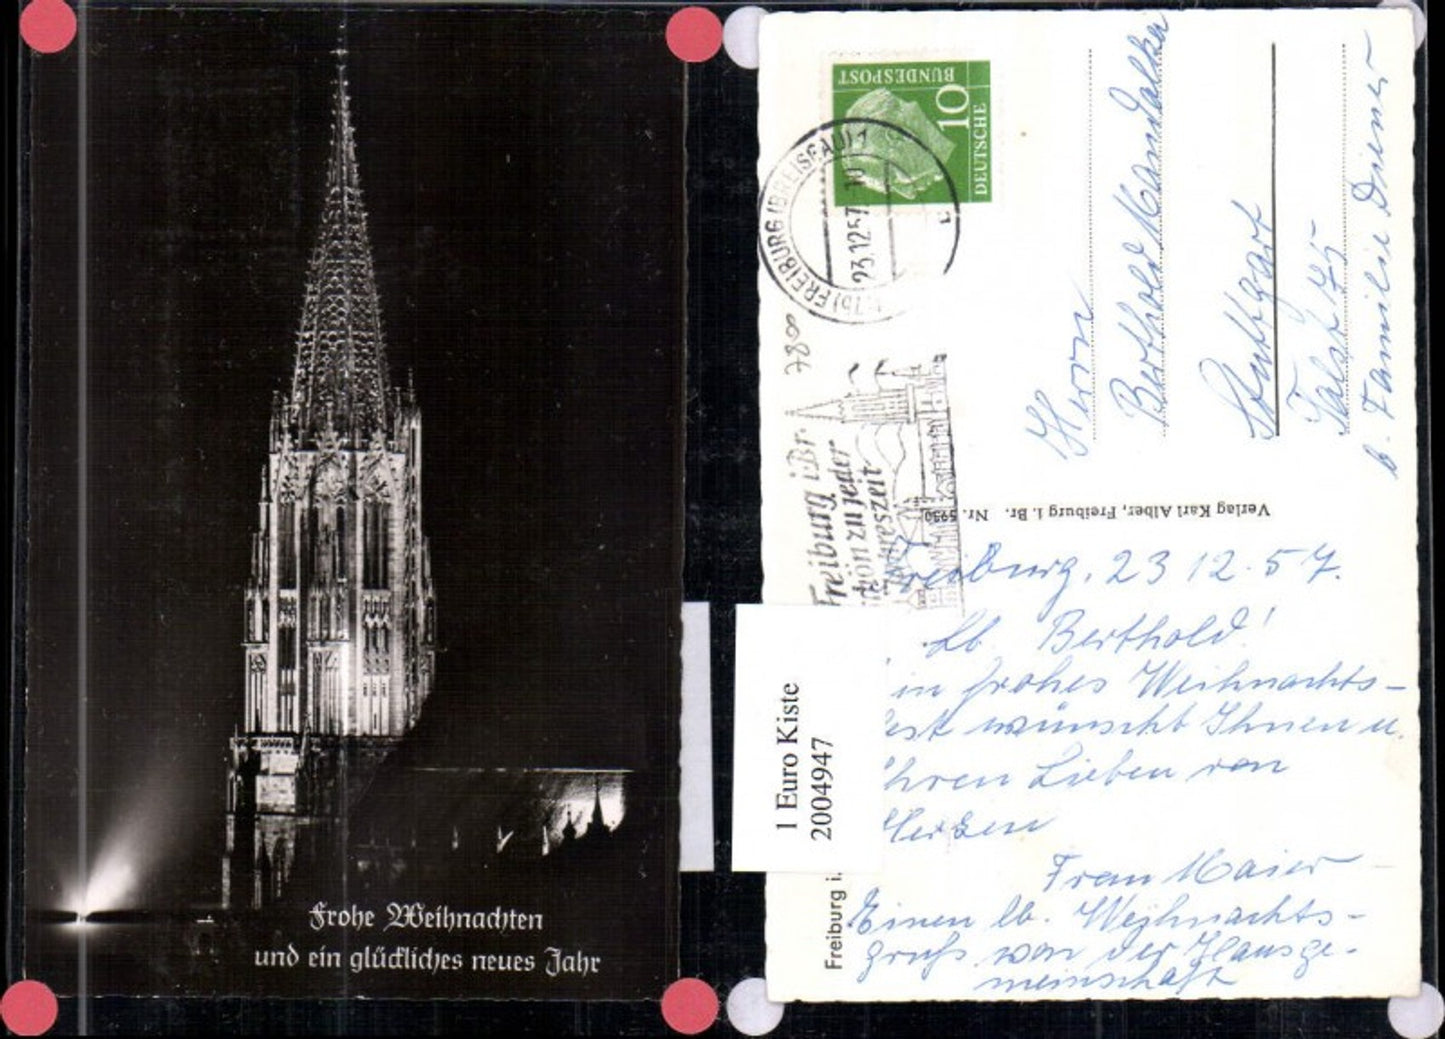 Frohe Weihnachten
und ein glückliches neues Jahr
DEUTSCHE
BUNDESPOST
10
(17b) FREIBURG (BREISGAU) 1
23.12.57
7800
Freiburg i. Br.
schön zu jeder
Jahreszeit
Herrn
Berthold
Stuttgart
Talstr. 75
b. Familie Diener
Verlag Karl Alber, Freiburg i. Br. Nr. 5950
1 Euro Kiste
2004947
Freiburg i.
Freiburg, 23 12. 57.
Lb. Berthold!
in frohes Weihnachts-
est wünscht Ihnen u.
hren Lieben von
Herzen
Frau Maier
Einen lb. Weihnachts-
gruß von der Hausge-
meinschaft